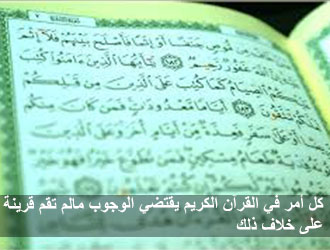 مُوصٍ جَنَفًا أَوْ إِثْمًا فَأَصْلَحَ بَيْنَهُمْ فَلَا إِثْمَ
اللَّهَ غَفُورٌ رَحِيمٌ يَٰأَيُّهَا الَّذِينَ ءَامَنُوا كُتِبَ
عَلَيْكُمُ الصِّيَامُ كَمَا كُتِبَ عَلَى الَّذِينَ مِن قَبْلِكُمْ
تَتَّقُونَ أَيَّامًا مَعْدُودَٰتٍ فَمَن كَانَ مِنكُم
أَوْ عَلَىٰ سَفَرٍ فَعِدَّةٌ مِنْ أَيَّامٍ أُخَرَ وَعَلَى الَّذِينَ
طَعَامُ مِسْكِينٍ فَمَن تَطَوَّعَ خَيْرًا فَهُوَ
كل أمر في القران الكريم يقتضي الوجوب مالم تقم قرينة
على خلاف ذلك